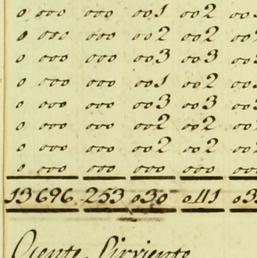 0 000 000 001 002
0 000 000 002 002
0 000 000 003 003
0 000 000 001 002
0 000 000 003 003
0 000 000 002 002
0 000 000 002 002
0 000 000 000 000
13696 253 030 041
Sirviente